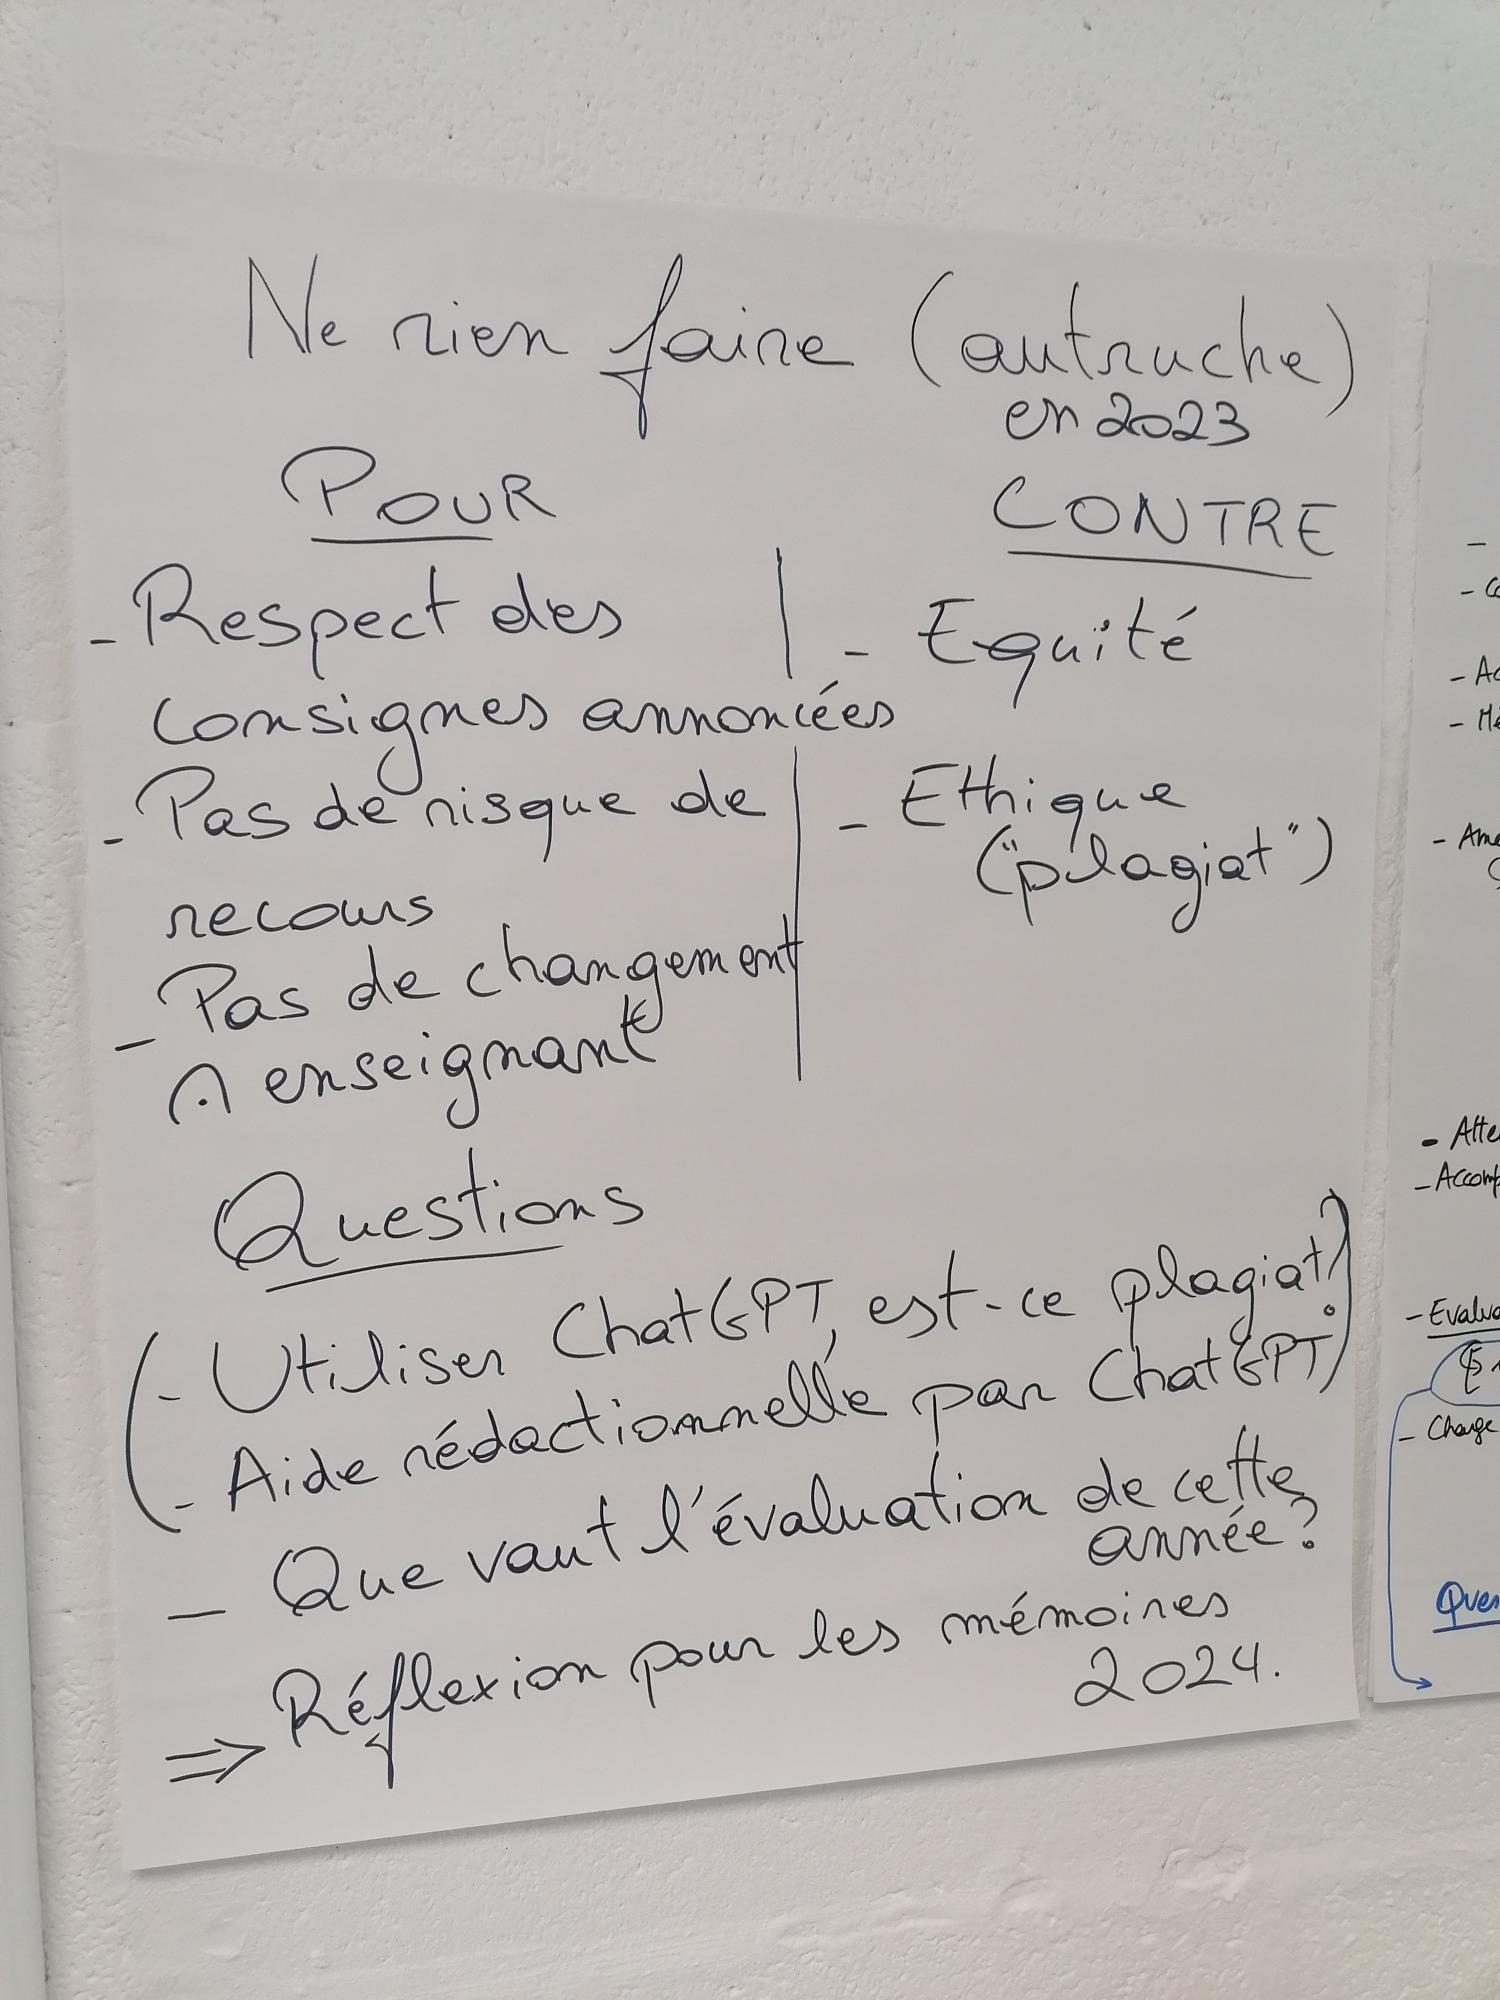 Ne rien faire (autruche)
en 2023
POUR
- Respect des
consignes annoncées
- Pas de risque de
recours
- Pas de changement
enseignant
CONTRE
- Equité
- Ethique
("plagiat")
Questions
- Utiliser ChatGPT, est-ce plagiat?
- Aide rédactionnelle par ChatGPT
- Que vaut l'évaluation de cette
année?
⇒ Réflexion pour les mémoires
2024.
- Evalua
- Change
Ques